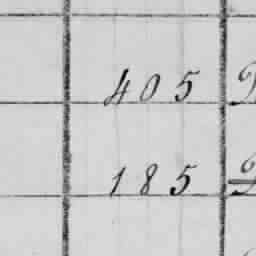 405
185